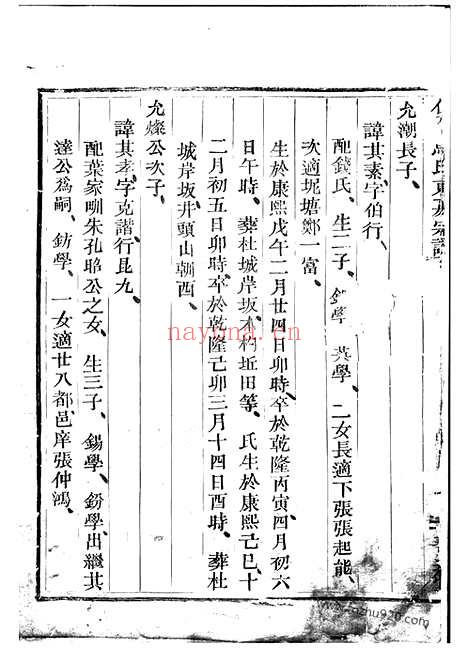 允潮長子、
諱其素、字伯行、
配錢氏、生二子、 學 英學、二女長適下張張起能、
次適坭塘鄭一富、
生於康熙戊午二月廿四日卯時、卒於乾隆丙寅四月初六
日午時、葬杜城岸坂、 坵田等、氏生於康熙己巳十
二月初五日卯時、卒於乾隆己卯三月十四日酉時、葬杜
城岸坂、井頭山朝酉、
允燦公次子、
諱其 、字克諧、行昆九、
配葉家 朱孔昭公之女、生三子、鍚學、鈖學、出繼其
達公爲嗣、鈁學、一女適廿八都、邑庠張仲鴻、
nayona.cn